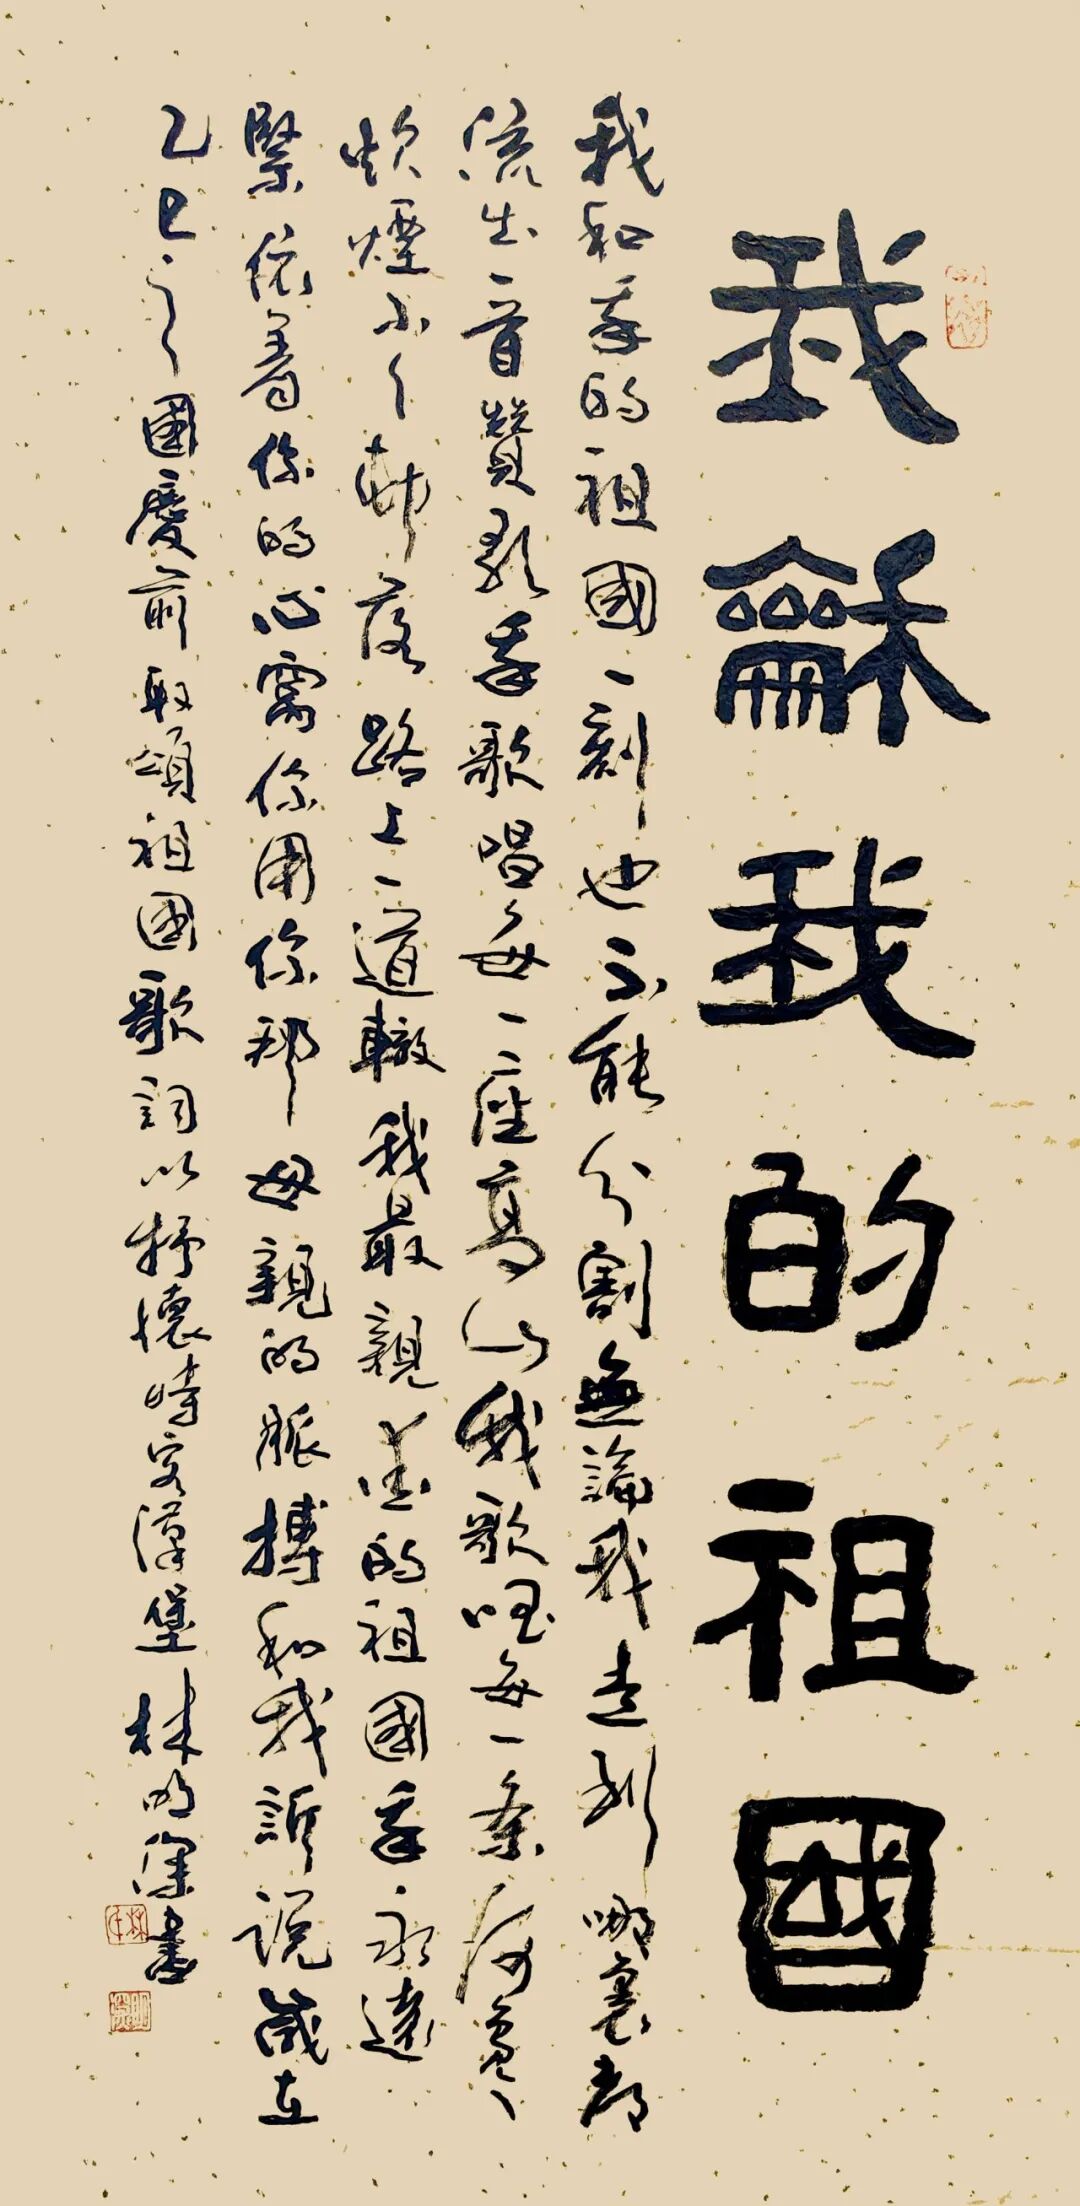 我龢我的祖國
我和我的祖國一刻也不能分割無論我走到哪裏都
流出一首贊歌我歌唱每一座高山我歌唱每一条河裊〻
炊煙小〻邨落路上一道轍我最親愛的祖國我永遠
緊依着你的心窩你用你那母親的脈搏和我訴說歲在
乙巳之國慶前取頌祖國歌詞以抒懷時客漢堡林明深書